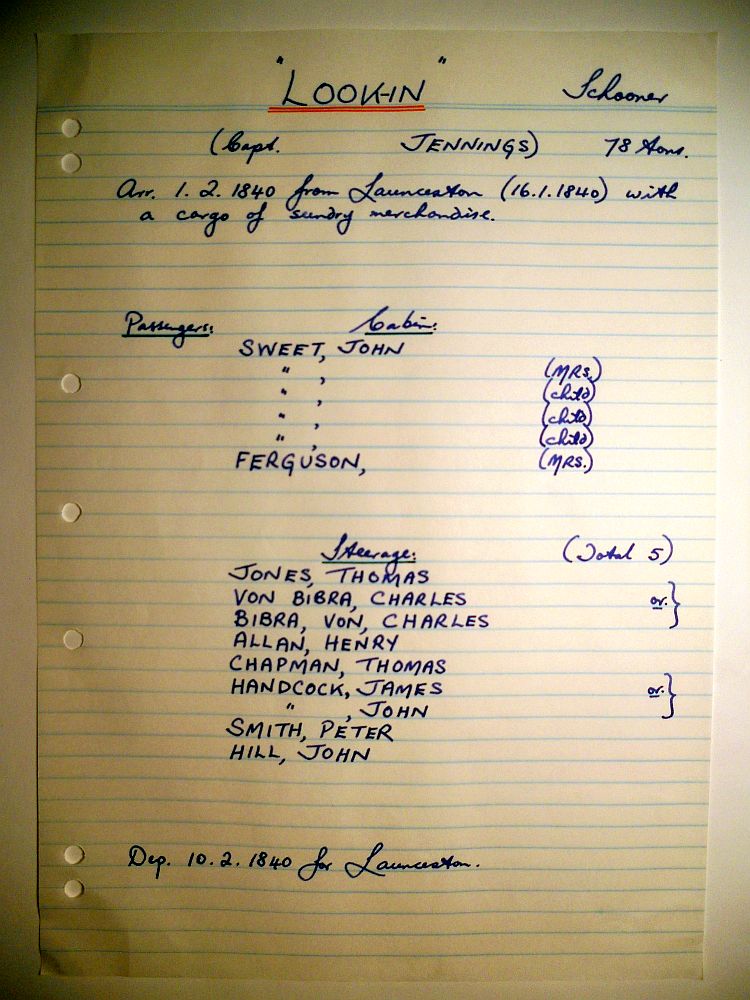 "LOOK-IN" Schooner
(Capt. JENNINGS) 78 tons.
Arr. 1. 2. 1840 from Launceston (16.1.1840) with
a cargo of sundry merchandise.
Passengers: Cabin:
SWEET, JOHN
" , (MRS.)
" , (child)
" , (child)
" , (child)
FERGUSON, (MRS.)
Steerage: (Total 5)
JONES, THOMAS
VON BIBRA, CHARLES or. }
BIBRA, VON, CHARLES
ALLAN, HENRY
CHAPMAN, THOMAS
HANDCOCK, JAMES or. }
" , JOHN
SMITH, PETER
HILL, JOHN
Dep. 10. 2. 1840 for Launceston.